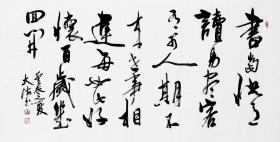 書當快意
讀易盡客
有可人期不
来世事相
違每如此好
懷百歲幾
回開
壬辰之夏